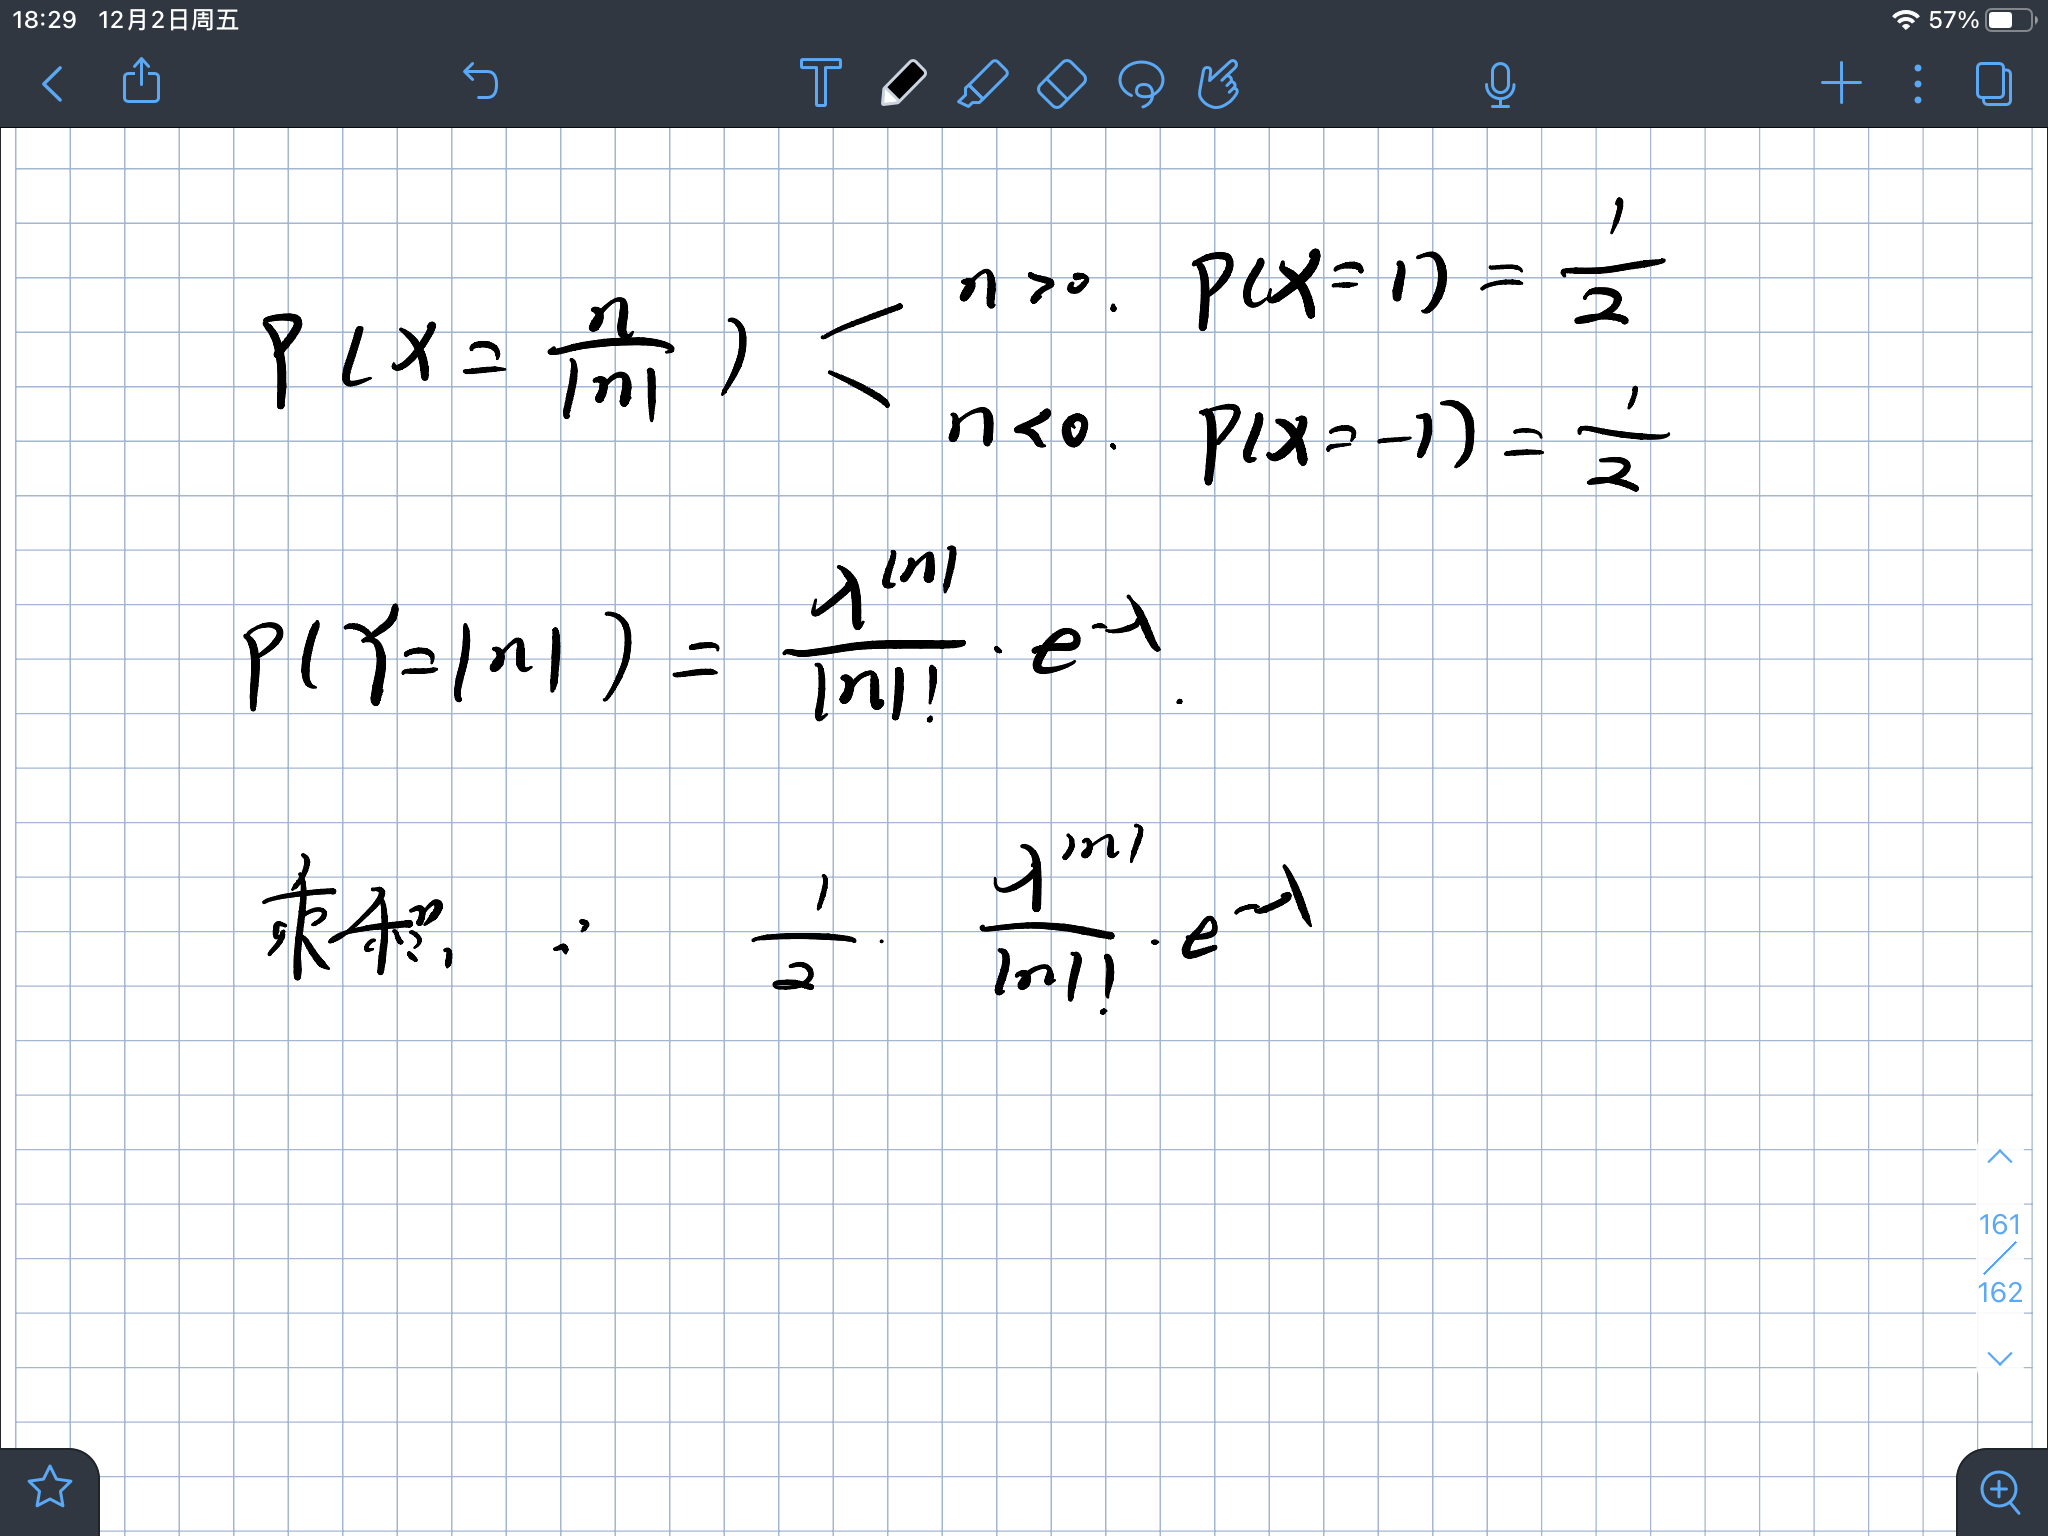 18:29 12月2日周五 57%
n>0. P(X=1) = 1/2
P(X= n/|n| )
n<0. P(X=-1) = 1/2
P(Y=|n|) = λ^|n| / |n|! · e^-λ.
1/2 · λ^|n| / |n|! · e^-λ
161
162